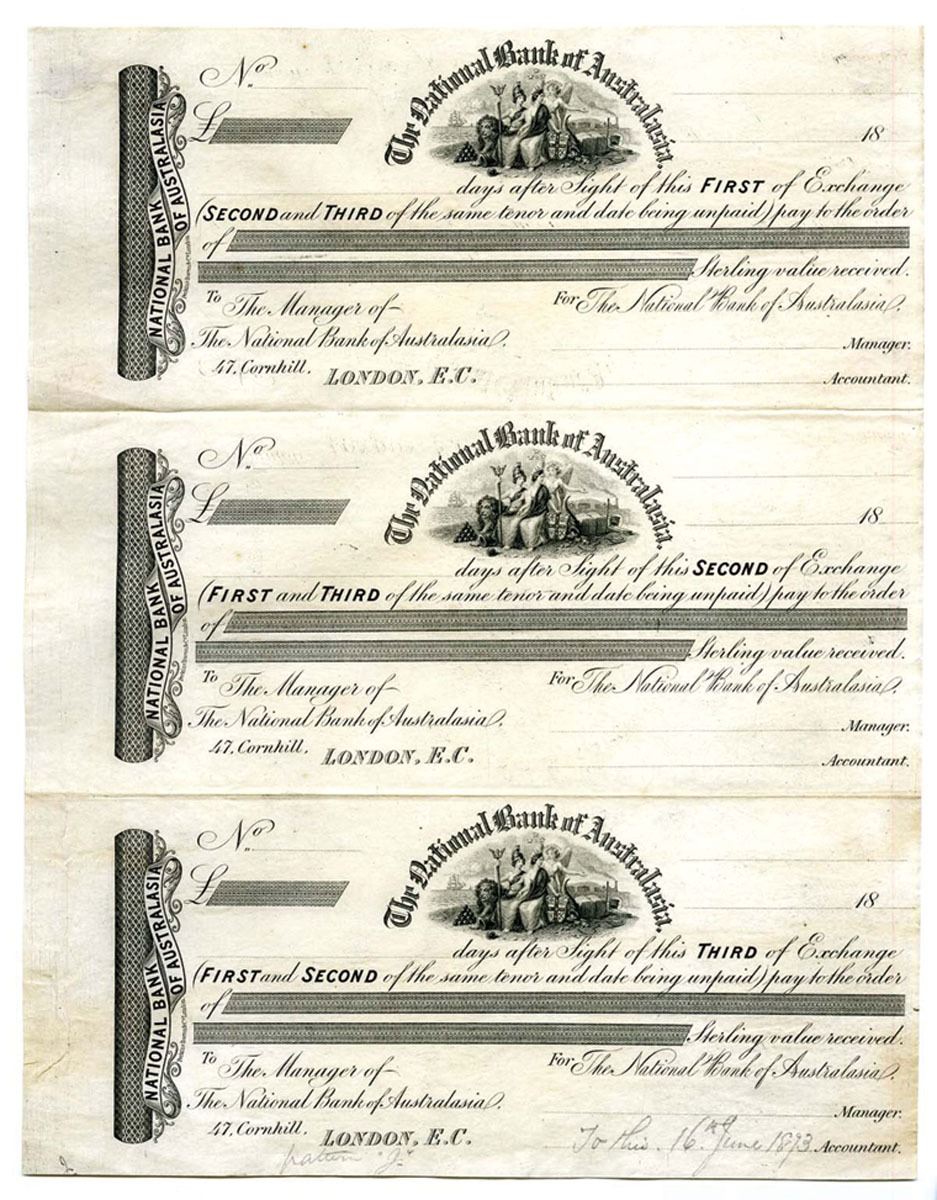 The National Bank of Australasia.
No.
NATIONAL BANK
OF AUSTRALASIA
£
18
days after Sight of this FIRST of Exchange
(SECOND and THIRD of the same tenor and date being unpaid) pay to the order
of
Sterling value received.
To The Manager of
For The National Bank of Australasia.
The National Bank of Australasia.
Manager.
47, Cornhill.
LONDON, E.C.
Accountant.
The National Bank of Australasia.
No.
NATIONAL BANK
OF AUSTRALASIA
£
18
days after Sight of this SECOND of Exchange
(FIRST and THIRD of the same tenor and date being unpaid) pay to the order
of
Sterling value received.
To The Manager of
For The National Bank of Australasia.
The National Bank of Australasia.
Manager.
47, Cornhill.
LONDON, E.C.
Accountant.
The National Bank of Australasia.
No.
NATIONAL BANK
OF AUSTRALASIA
£
18
days after Sight of this THIRD of Exchange
(FIRST and SECOND of the same tenor and date being unpaid) pay to the order
of
Sterling value received.
To The Manager of
For The National Bank of Australasia.
The National Bank of Australasia.
Manager.
47, Cornhill.
LONDON, E.C.
To this 16th June 1893
Accountant.
pattern "J"